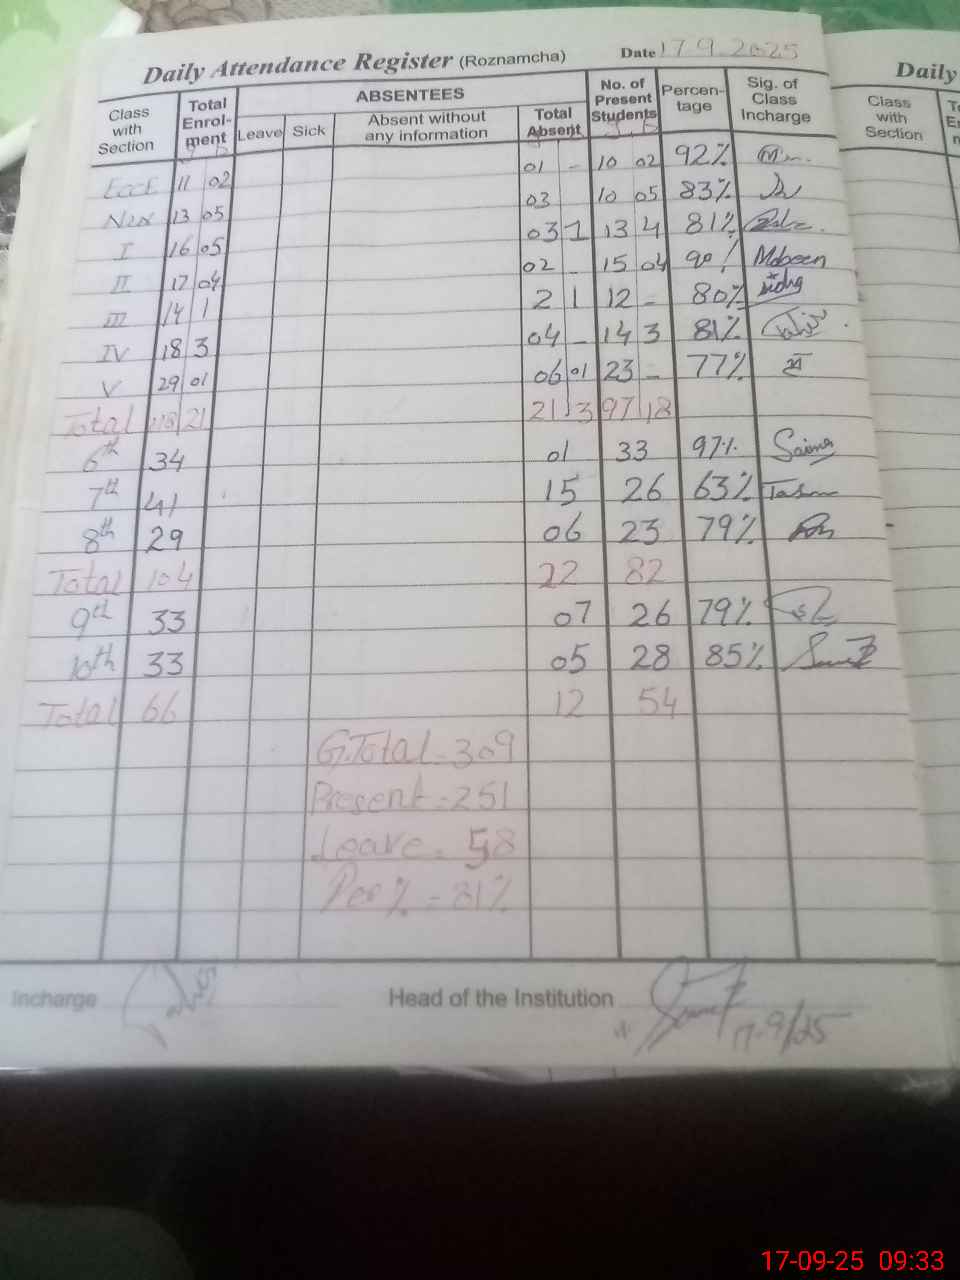 Daily Attendance Register (Roznamcha) Date 17.9.2025
Class with Section Total Enrol-ment ABSENTEES No. of Present Students Percen-tage Sig. of Class Incharge
Leave Sick Absent without any information Total Absent
ECCE 11 02 01 - 10 02 92%
Nur 13 05 03 10 05 83%
I 16 05 03 1 13 4 81%
II 17 04 02 - 15 04 90% Mobeen
III 14 1 2 1 12 - 80%
IV 18 3 04 - 14 3 81%
V 29 01 06 01 23 - 77%
Total 118 21 21 3 97 18
6th 34 01 33 97% Saima
7th 41 15 26 63%
8th 29 06 23 79%
Total 104 22 82
9th 33 07 26 79%
10th 33 05 28 85%
Total 66 12 54
G.Total - 309
Present - 251
Leave - 58
Per % - 81%
Incharge Head of the Institution
17-9/25
Daily
Class with Section
17-09-25 09:33